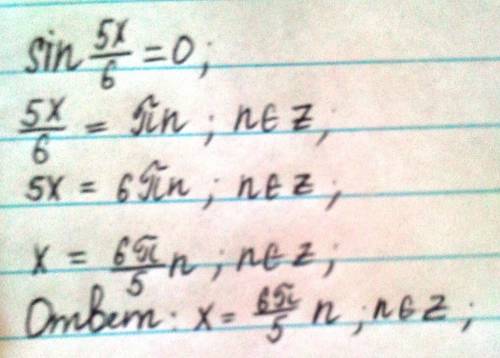 sin 5x/6 = 0;
5x/6 = πn; n∈z;
5x = 6πn; n∈z;
x = 6π/5 n; n∈z;
Ответ: x = 6π/5 n; n∈z;